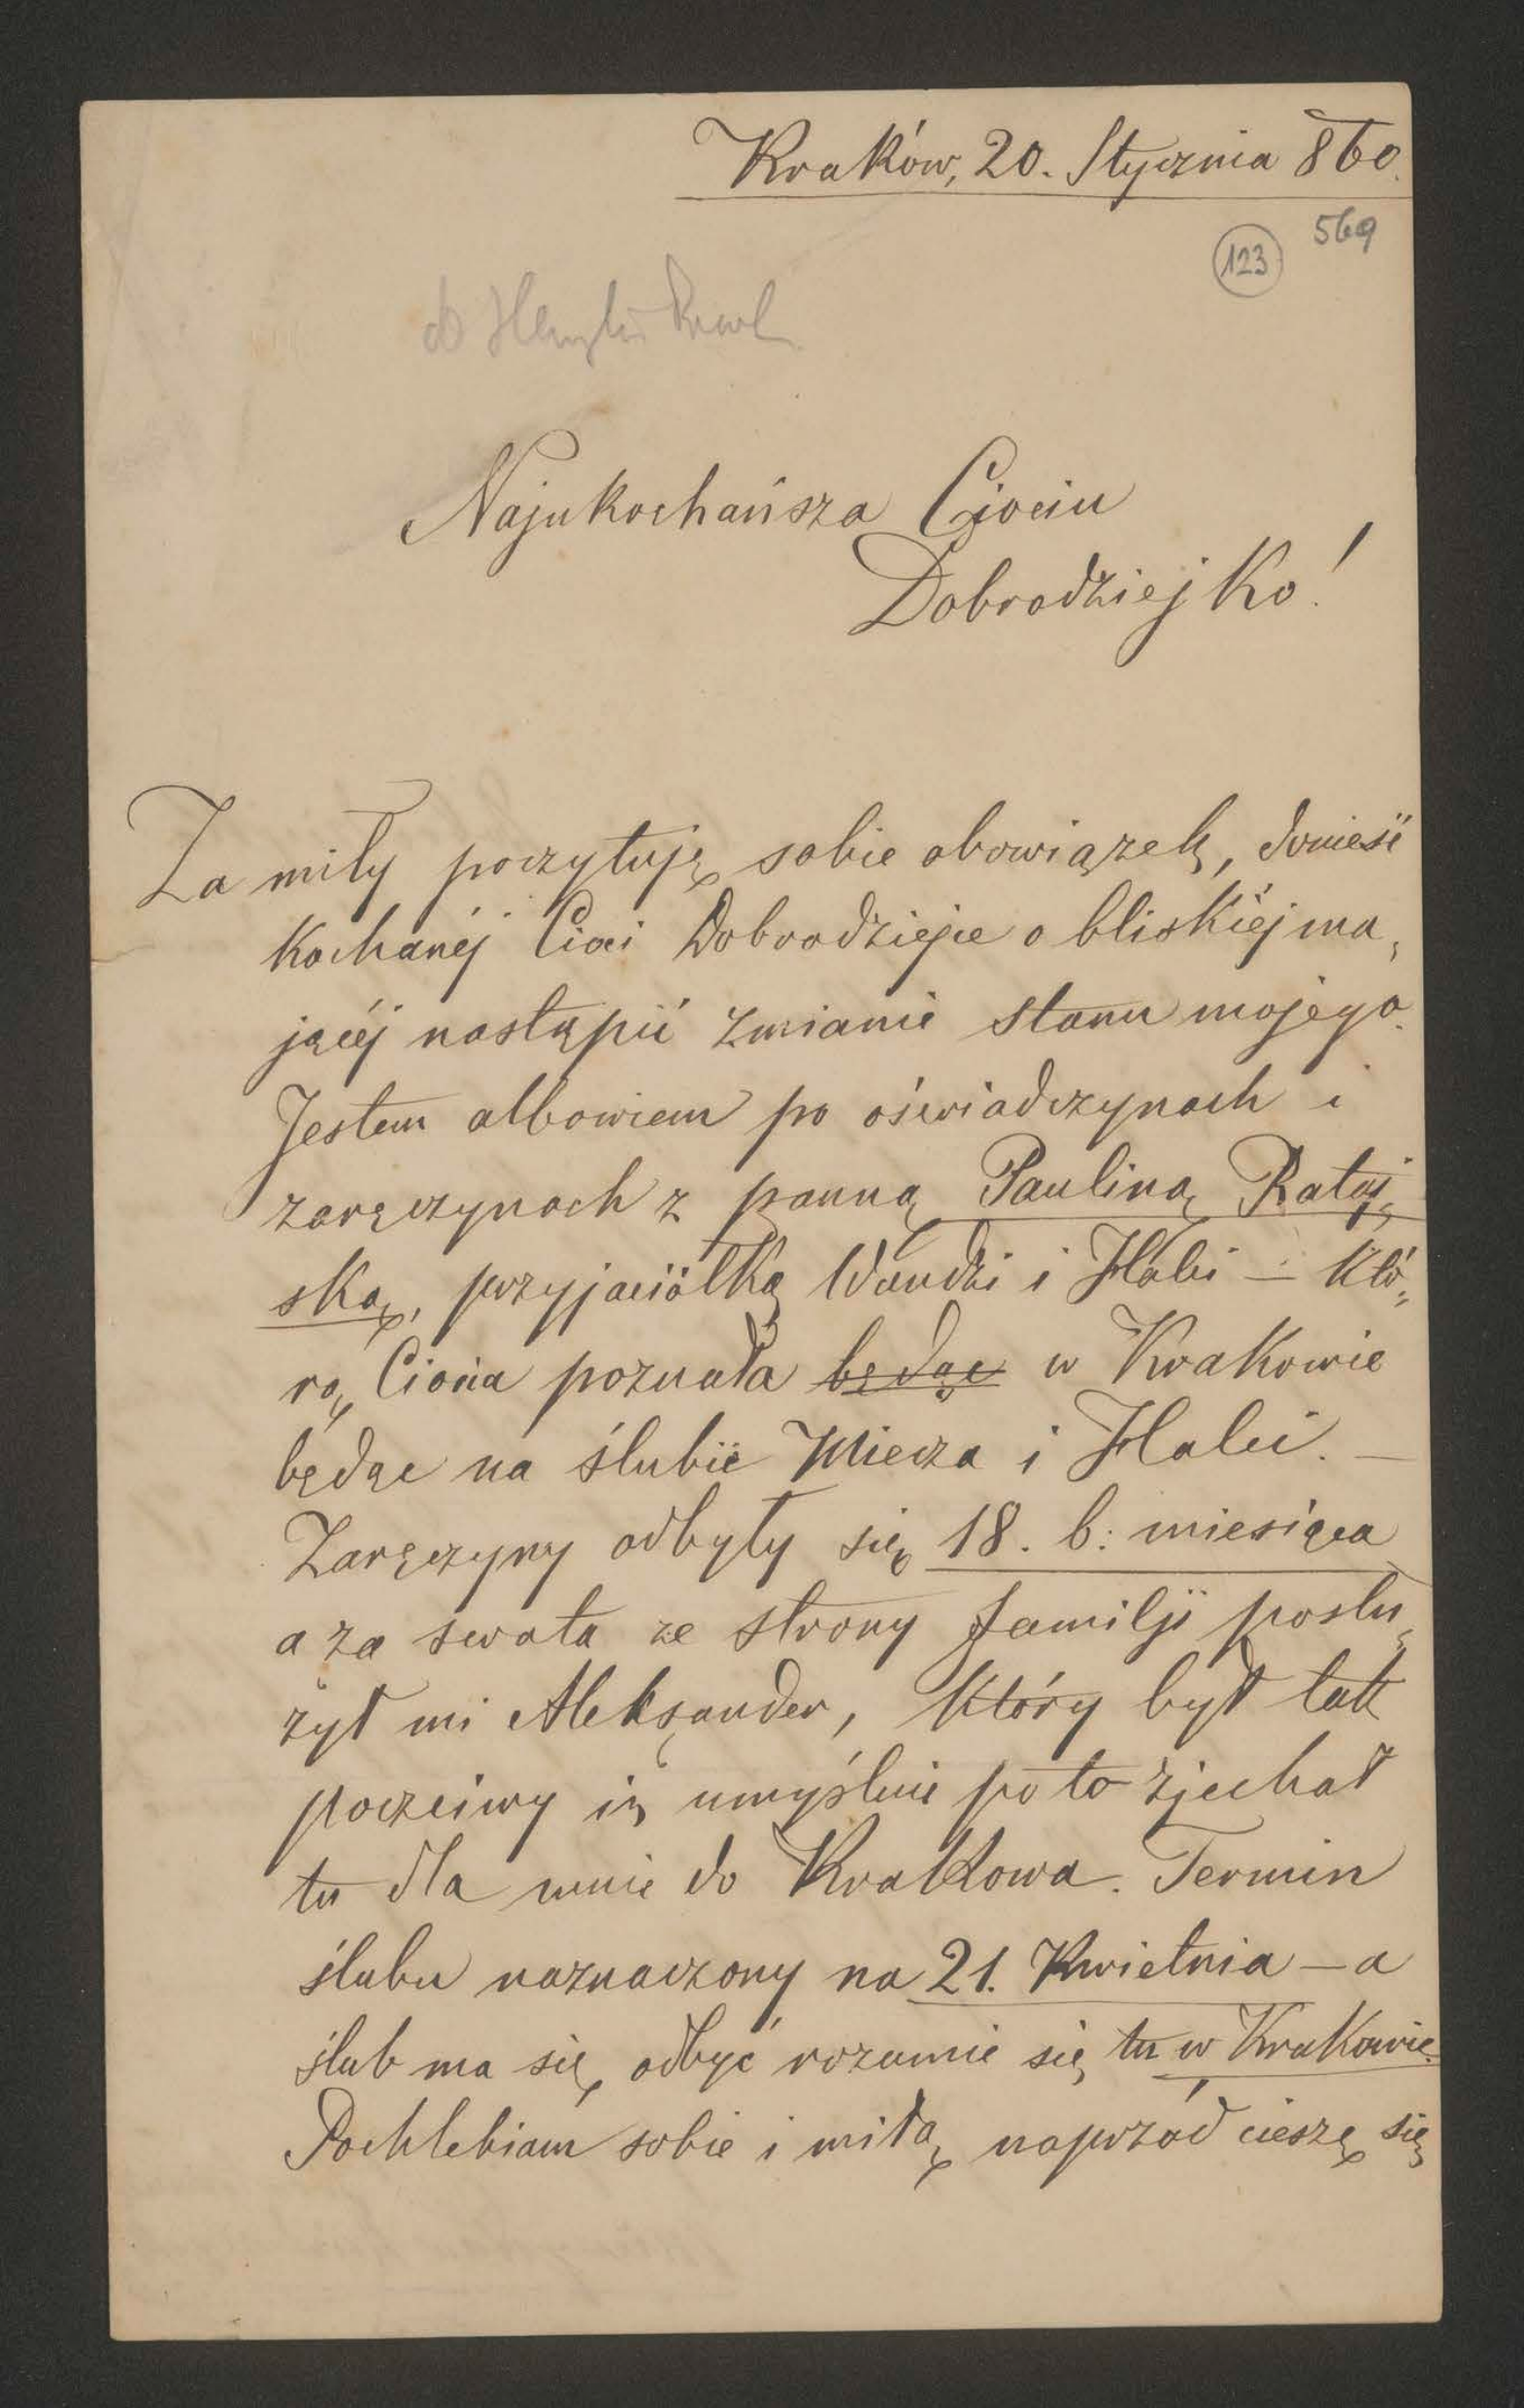 Kraków, 20. Stycznia 860.
569
123
Najukochańsza Ciociu
Dobrodziejko!
Za miły poczytuję sobie obowiązek, donieść
Kochanéj Cioci Dobrodziejce o bliskiéj ma„
jącéj nastąpić zmianie stanu mojego.
Jestem albowiem po oświadczynach i
zaręczynach z panną Pauliną Rataj„
ską, przyjaciółką Wandzi i Halci – któ„
rą Ciocia poznała będąc w Krakowie
będąc na ślubie Miecza i Halci. –
Zaręczyny odbyły się 18. b: miesiąca
a za swata ze strony familji posłu„
żył mi Aleksander, który był tak
poczciwy iż umyślnie po to zjechał
tu dla mnie do Krakowa. Termin
ślubu naznaczony na 21. Kwietnia – a
ślub ma się odbyć rozumie się tu w Krakowie.
Pochlebiam sobie i miłą naprzód cieszę się